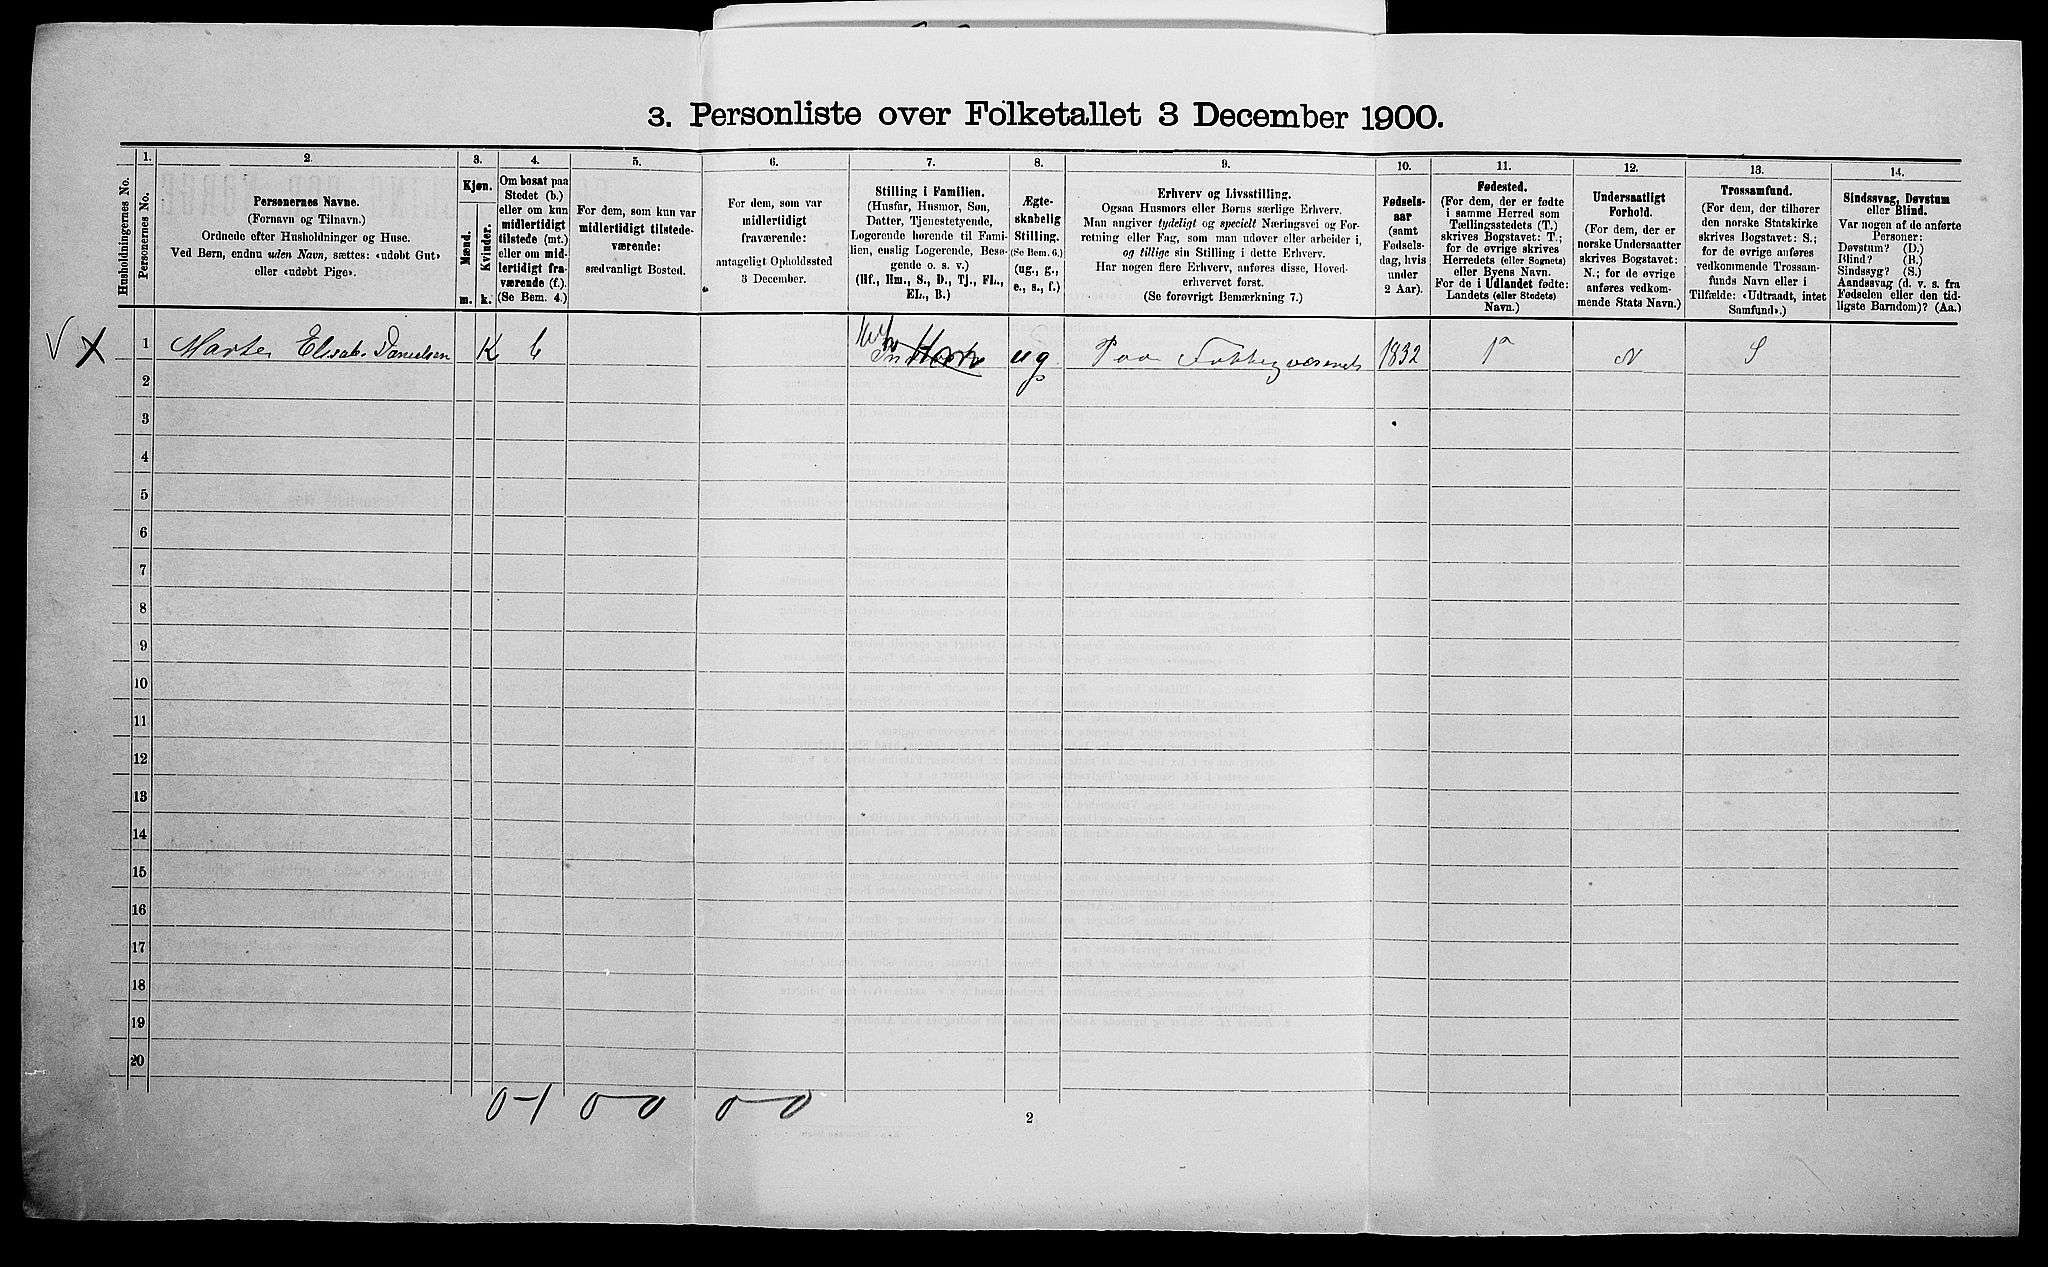 3. Personliste over Folketallet 3 December 1900.
1. 2. 3. 4. 5. 6. 7. 8. 9. 10. 11. 12. 13. 14.
Husholdningernes No.
Personernes No.
Personernes Navne.
(Fornavn og Tilnavn.)
Ordnede efter Husholdninger og Huse.
Ved Børn, endnu uden Navn, sættes: «udøbt Gut»
eller «udøbt Pige».
Kjøn.
Mænd.
Kvinder.
m. k.
Om bosat paa
Stedet (b.)
eller om kun
midlertidigt
tilstede (mt.)
eller om mid-
lertidigt fra-
værende (f.).
(Se Bem. 4.)
For dem, som kun var
midlertidigt tilstede-
værende:
sædvanligt Bosted.
For dem, som var
midlertidigt
fraværende:
antageligt Opholdssted
3 December.
Stilling i Familien.
(Husfar, Husmor, Søn,
Datter, Tjenestetyende,
Logerende hørende til Fami-
lien, enslig Logerende, Besø-
gende o. s. v.)
(Hf., Hm., S., D., Tj., FL.,
EL., B.)
Ægte-
skabelig
Stilling.
(Se Bem. 6.)
(ug., g.,
e., s., f.)
Erhverv og Livsstilling.
Ogsaa Husmors eller Børns særlige Erhverv.
Man angiver tydeligt og specielt Næringsvei og For-
retning eller Fag, som man udøver eller arbeider i,
og tillige sin Stilling i dette Erhverv.
Har nogen flere Erhverv, anføres disse, Hoved-
erhvervet først.
(Se forøvrigt Bemærkning 7.)
Fødsels-
aar
(samt
Fødsels-
dag, hvis
under
2 Aar).
Fødested.
(For dem, der er fødte
i samme Herred som
Tællingsstedets (T.)
skrives Bogstavet: T.;
for de øvrige skrives
Herredets (eller Sognets)
eller Byens Navn.
For de i Udlandet fødte:
Landets (eller Stedets)
Navn.)
Undersaatligt
Forhold.
(For dem, der er
norske Undersaatter
skrives Bogstavet:
N.; for de øvrige
anføres vedkom-
mende Stats Navn.)
Trossamfund.
(For dem, der tilhører
den norske Statskirke
skrives Bogstavet: S.;
for de øvrige anføres
vedkommende Trossam-
funds Navn eller i
Tilfælde: «Udtraadt, intet
Samfund».)
Sindssvag, Døvstum
eller Blind.
Var nogen af de anførte
Personer:
Døvstum? (D.)
Blind? (B.)
Sindssyg? (S.)
Aandssvag (d. v. s. fra
Fødselen eller den tid-
ligste Barndom)? (Aa.)
1 Marte Elisab. Danielsen K b ug Paa Fattigvæsenet 1832 T N S
2
3
4
5
6
7
8
9
10
11
12
13
14
15
16
17
18
19
20
0-1 0-0 0-0
2